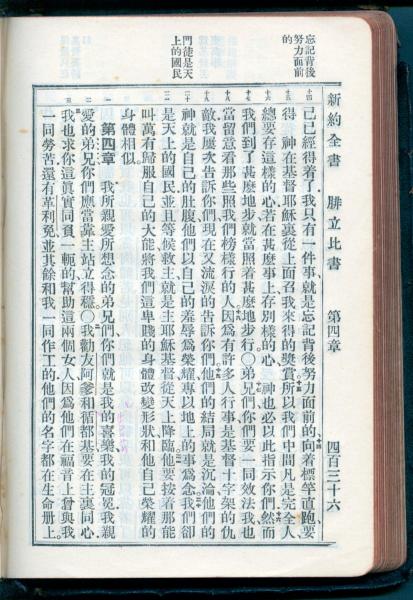 新約全書 腓立比書 第四章 四百三十六
忘記背後
努力面前
的
門徒是天
上的國民
己已經得着了、我只有一件事、就是忘記背後努力面前的、向着標竿直跑、要
得 神在基督耶穌裏從上面召我來得的獎賞。所以我們中間凡是完全人、
總要存這樣的心、若在甚麼事上存別樣的心、 神也必以此指示你們。然而
我們到了甚麼地步、就當照着甚麼地步行。〇弟兄們、你們要一同效法我、也
當留意看那些照我們榜樣行的人。因爲有許多人行事是基督十字架的仇
敵、我屢次告訴你們、現在又流淚的告訴你們。他們的結局就是沉淪、他們的
神就是自己的肚腹、他們以自己的羞辱爲榮耀、專以地上的事爲念。我們却
是天上的國民、並且等候救主、就是主耶穌基督從天上降臨。他要按着那能
叫萬有歸服自己的大能、將我們這卑賤的身體改變形狀、和他自己榮耀的
身體相似。
第四章 我所親愛所想念的弟兄們、你們就是我的喜樂、我的冠冕、我親
愛的弟兄、你們應當靠主站立得穩。〇我勸友阿爹和循都基、要在主裏同心。
我也求你這眞實同負一軛的、幫助這兩個女人、因爲他們在福音上曾與我
一同勞苦、還有革利免、並其餘和我一同作工的、他們的名字都在生命册上。